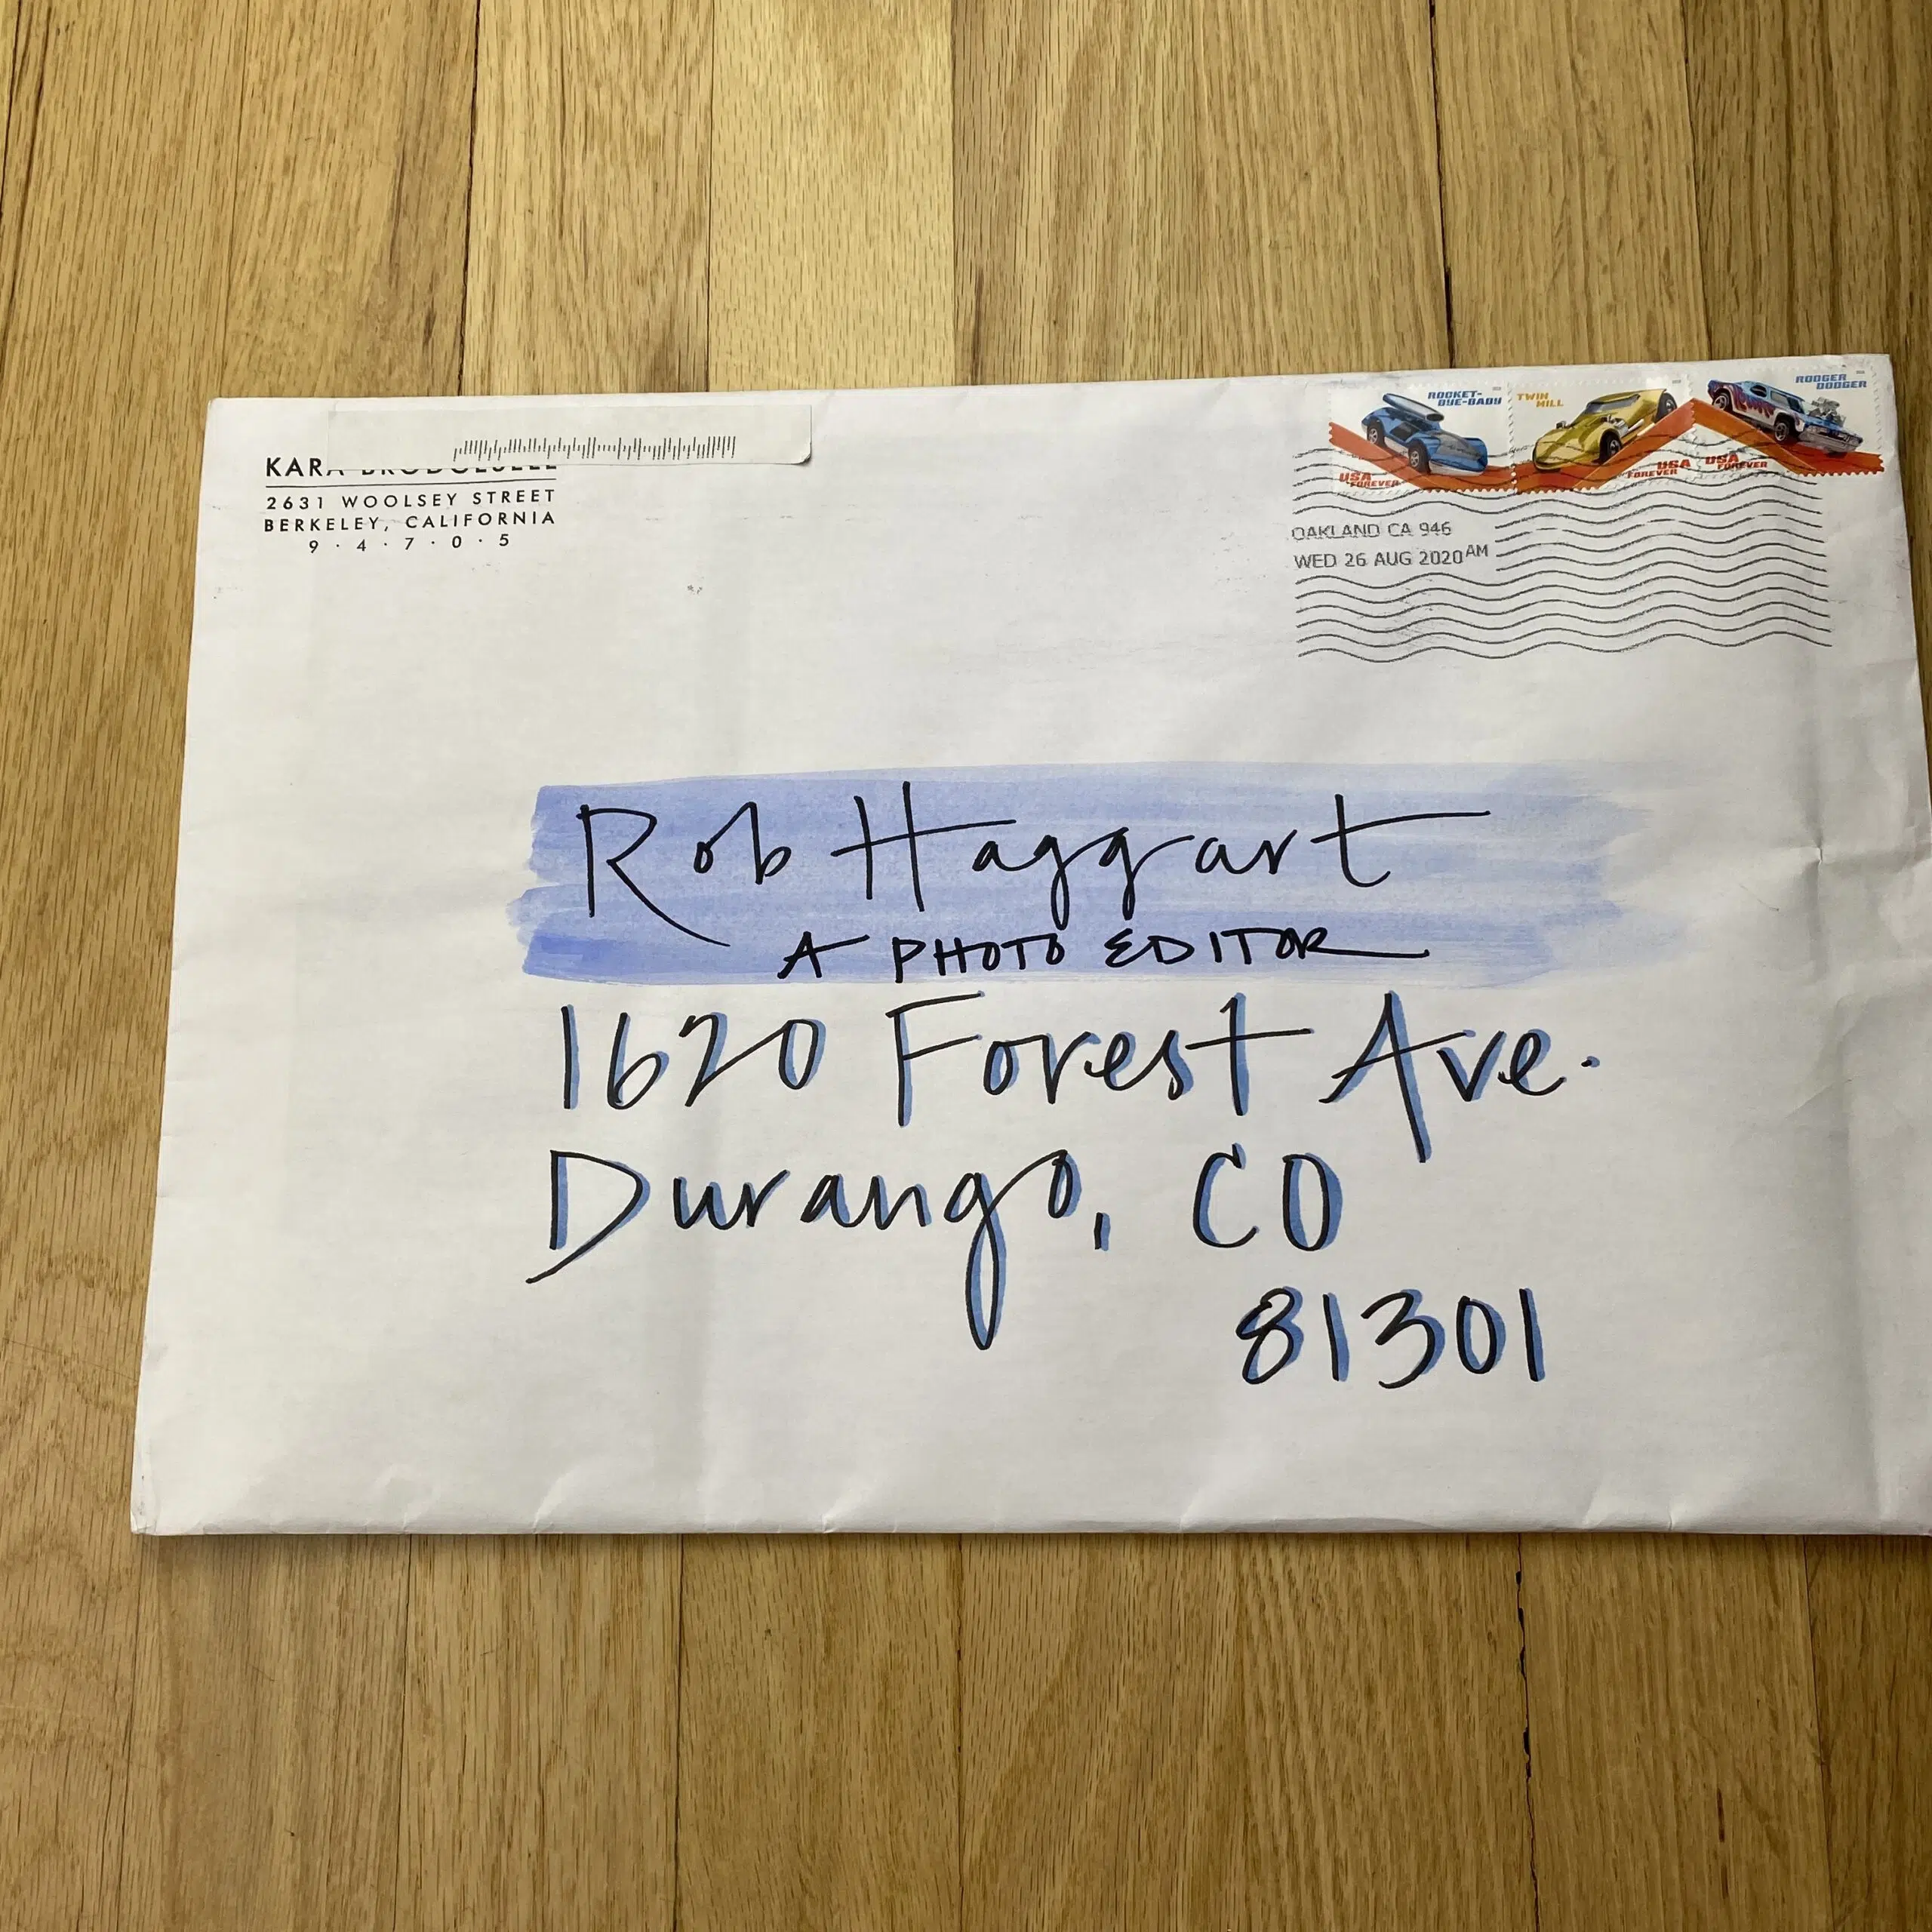 2631 WOOLSEY STREET
BERKELEY, CALIFORNIA
9 · 4 · 7 · 0 · 5
ROCKET-
BYE-BABY
USA
FOREVER
TWIN
MILL
FOREVER USA
RODGER
DODGER
USA
FOREVER
OAKLAND CA 946
WED 26 AUG 2020 AM
Rob Haggart
A PHOTO EDITOR
1620 Forest Ave.
Durango, CO
81301